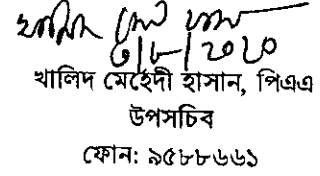 ৩/৮/২০২০
খালিদ মেহেদী হাসান, পিএএ
উপসচিব
ফোন: ৯৫৮৮৬৬১